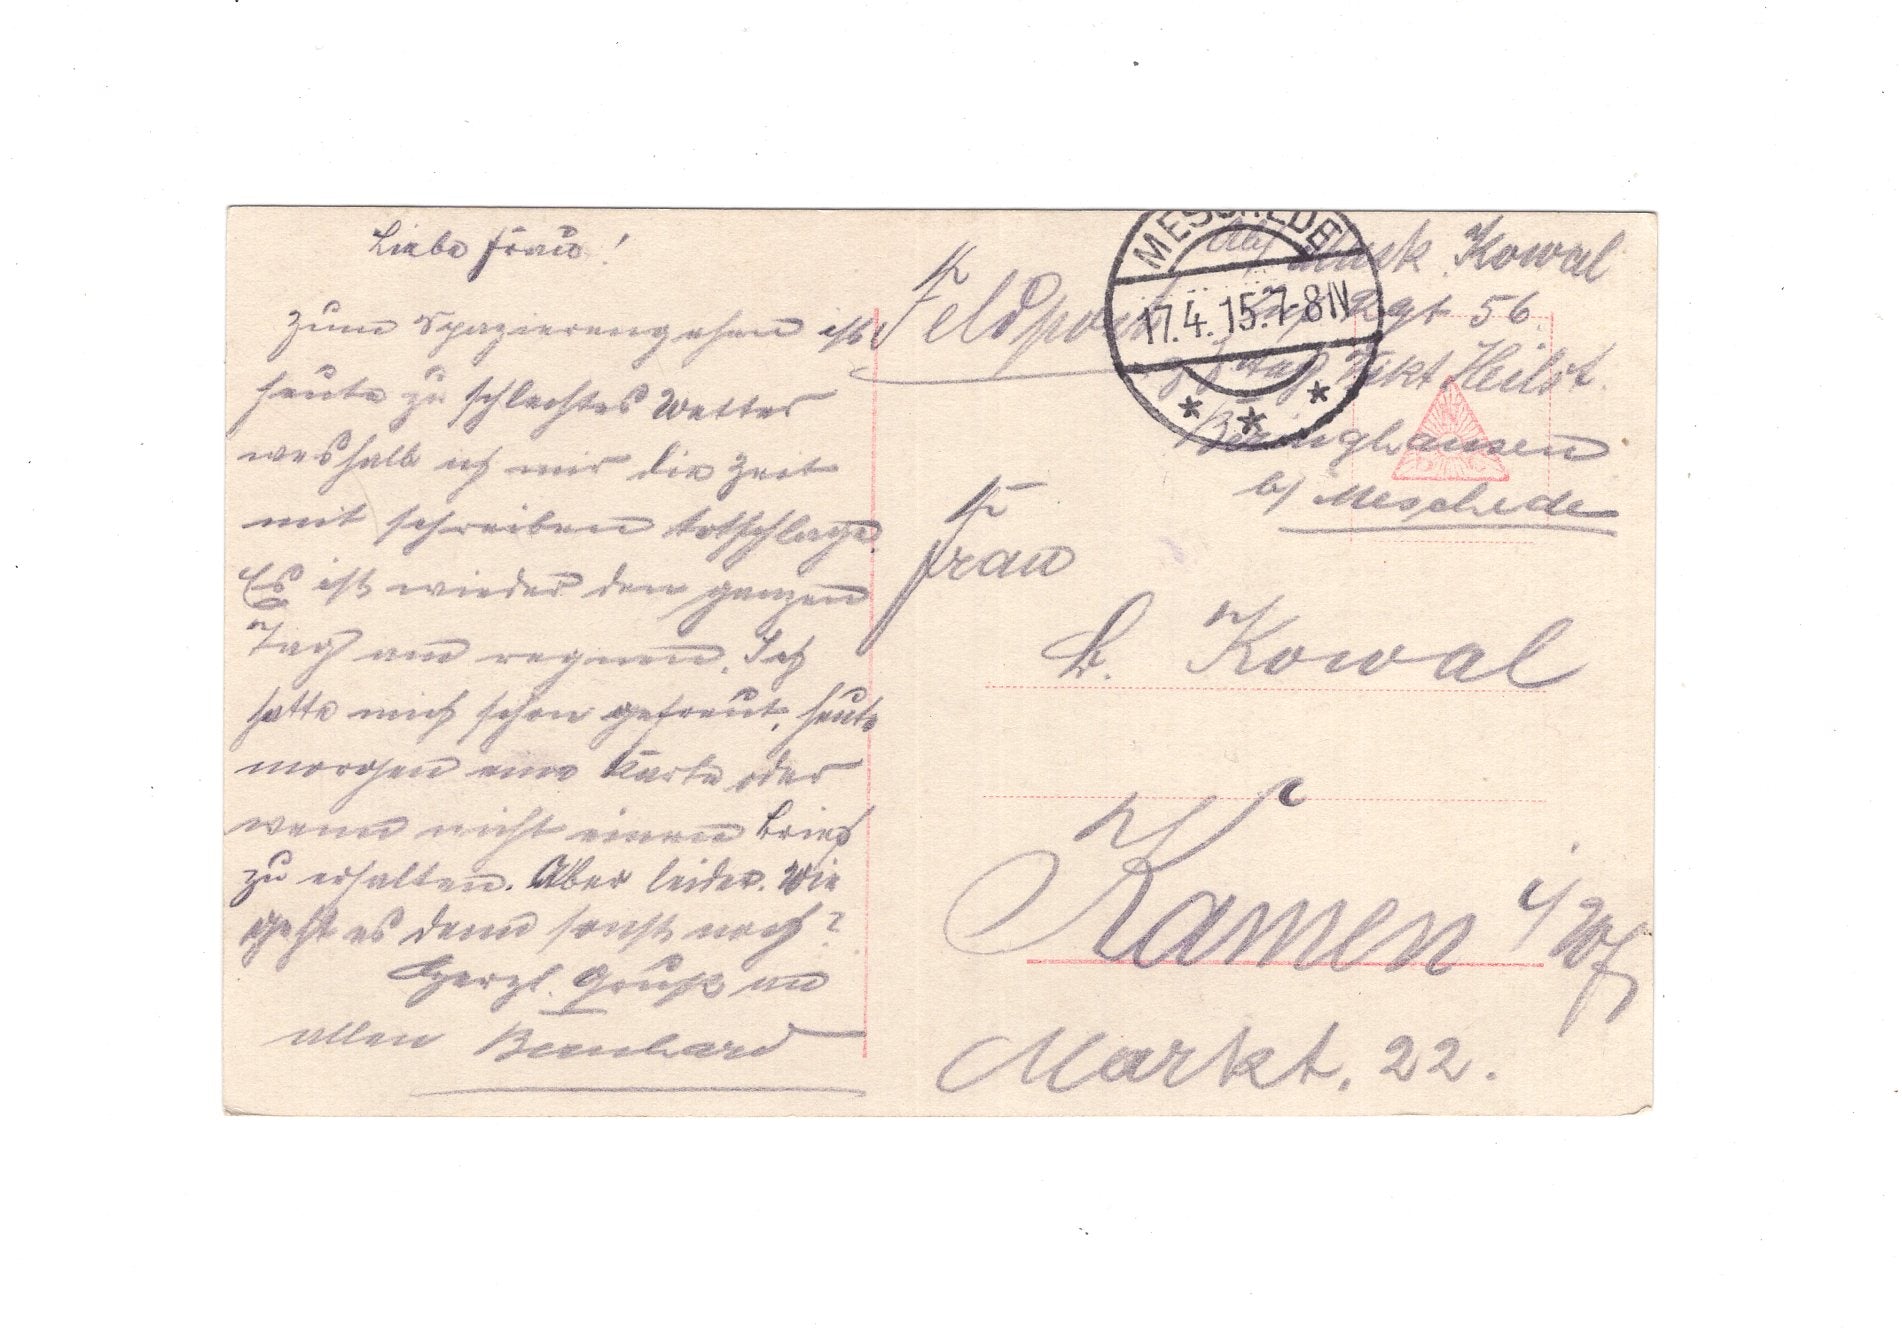 Liebe Frau!
Zum Spazierengehen ist
heute zu schlechtes Wetter
weshalb ich mir die Zeit
mit schreiben totschlage
Es ist wieder den ganzen
Tag am regnen. Ich
hatte mich schon gefreut, heute
morgen eine Karte oder
wenn nicht einen Brief
zu erhalten. Aber leider. Wie
geht es denn sonst noch?
Herzl. Gruß an
allen Bernhard
Feldpost
MESCHEDE
17.4.15.7-8N
* * *
Abs Musk Kowal
Inf Rgt 56.
Heilst.
Beringhausen
b/ Meschede
Frau
B. Kowal
Kamen i/Wf
Markt. 22.